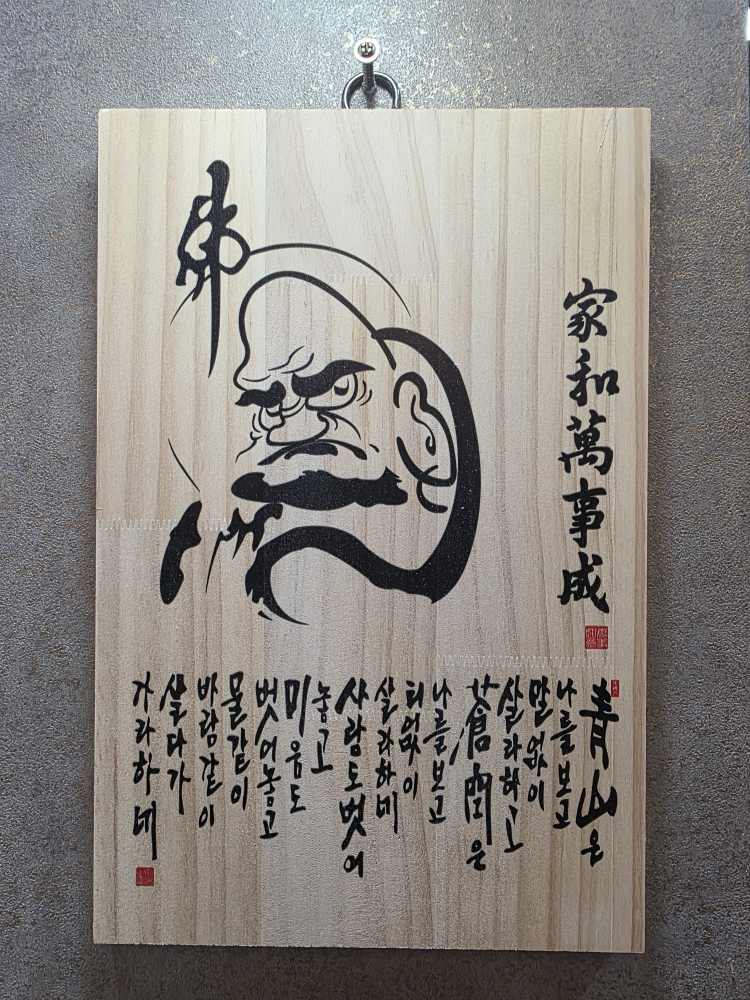 佛
家和萬事成
青山은
나를보고
말없이
살라하고
蒼空은
나를보고
티없이
살라하네
사랑도벗어
놓고
미움도
벗어놓고
물같이
바람같이
살다가
가라하네